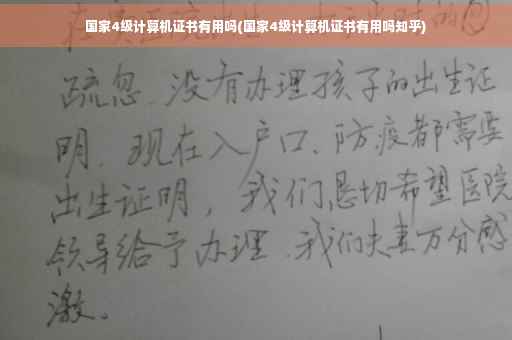 国家4级计算机证书有用吗(国家4级计算机证书有用吗知乎)
疏忽、没有办理孩子的出生证
明、现在入户口、防疫都需要
出生证明，我们恳切希望医院
领导给予办理、我们夫妻万分感
激。